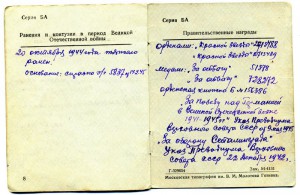 Серия БА
Ранения и контузии в период Великой
Отечественной войны
20 октября 1944 года тяжело
ранен.
основание: справка
8
Серия БА
Правительственные награды
орденами: "Красной Звезды"
"Красной Звезды"
медали: "За отвагу"
"За отвагу"
орденская книжка
"За победу над Германией
в Великой Отечественной войне
1941-1945гг" Указ Президиума
Верховного Совета СССР от 9 мая 1945
"За оборону Севастополя"
Указ Президиума Верховного
Совета СССР 22 декабря 1942г.
Московская типография им. В. И. Молотова Гознака.